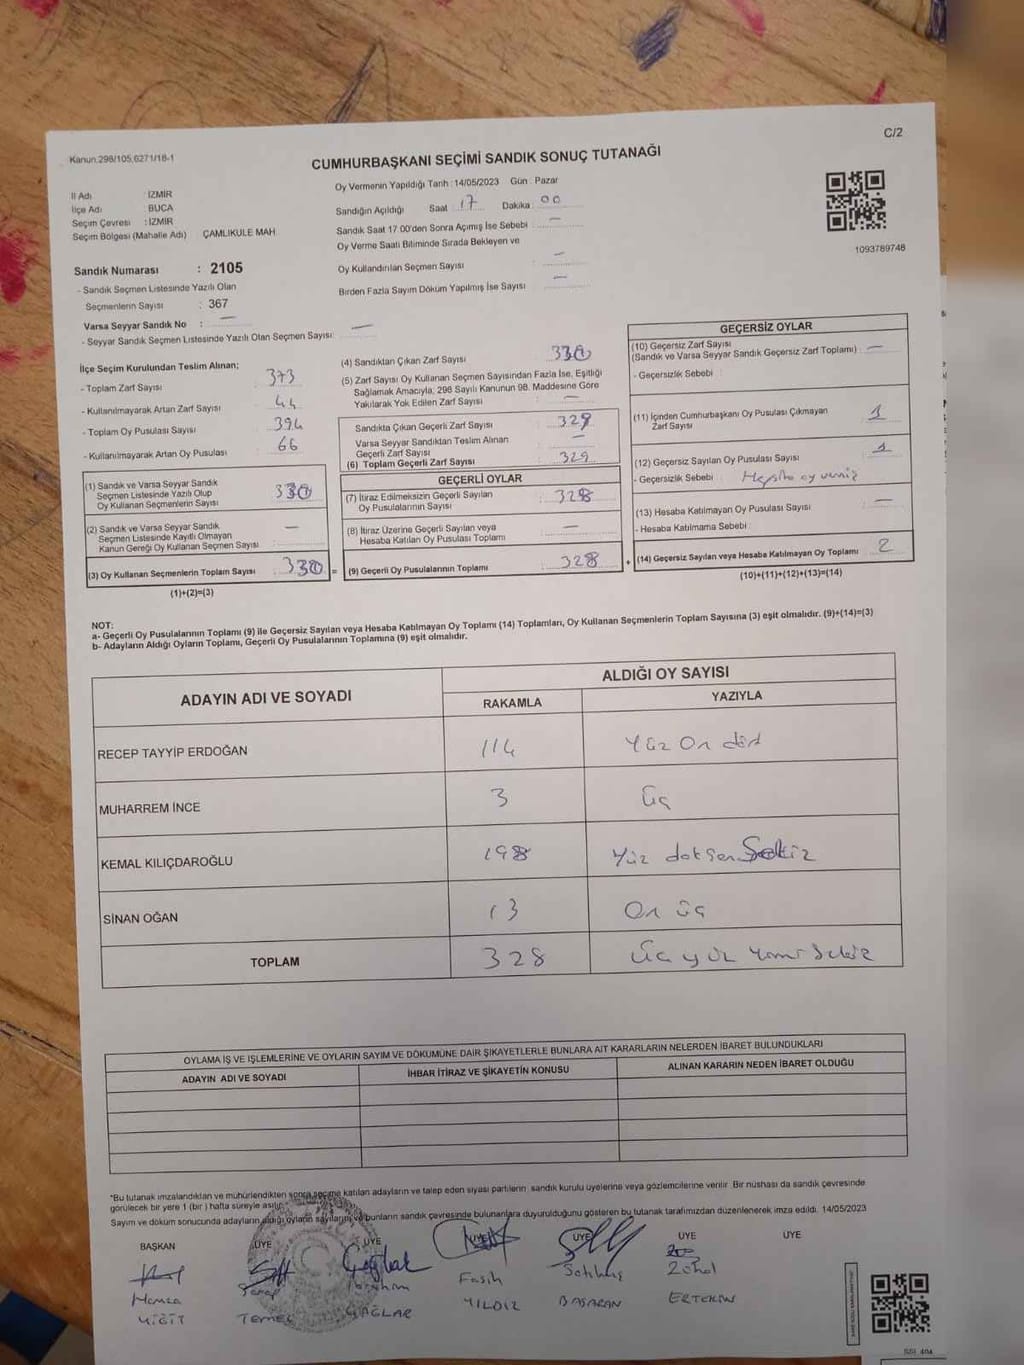 C/2
Kanun:298/105,6271/18-1
CUMHURBAŞKANI SEÇİMİ SANDIK SONUÇ TUTANAĞI
Oy Vermenin Yapıldığı Tarih : 14/05/2023 Gün : Pazar
İl Adı : İZMİR
İlçe Adı : BUCA
Seçim Çevresi : İZMİR
Seçim Bölgesi (Mahalle Adı) ÇAMLIKULE MAH.
Sandığın Açıldığı Saat : 17 Dakika : 00
Sandık Saat 17.00'den Sonra Açımış İse Sebebi : —
Oy Verme Saati Bitiminde Sırada Bekleyen ve
Oy Kullandırılan Seçmen Sayısı : —
Birden Fazla Sayım Döküm Yapılmış İse Sayısı : —
1093789748
Sandık Numarası : 2105
- Sandık Seçmen Listesinde Yazılı Olan
Seçmenlerin Sayısı : 367
Varsa Seyyar Sandık No : —
- Seyyar Sandık Seçmen Listesinde Yazılı Olan Seçmen Sayısı: —
İlçe Seçim Kurulundan Teslim Alınan;
- Toplam Zarf Sayısı : 373
- Kullanılmayarak Artan Zarf Sayısı : 44
- Toplam Oy Pusulası Sayısı : 394
- Kullanılmayarak Artan Oy Pusulası : 66
(1) Sandık ve Varsa Seyyar Sandık
Seçmen Listesinde Yazılı Olup
Oy Kullanan Seçmenlerin Sayısı : 330
(2) Sandık ve Varsa Seyyar Sandık
Seçmen Listesinde Kayıtlı Olmayan
Kanun Gereği Oy Kullanan Seçmen Sayısı : —
(3) Oy Kullanan Seçmenlerin Toplam Sayısı : 330
(1)+(2)=(3)
(4) Sandıktan Çıkan Zarf Sayısı : 330
(5) Zarf Sayısı Oy Kullanan Seçmen Sayısından Fazla İse, Eşitliği
Sağlamak Amacıyla; 298 Sayılı Kanunun 98. Maddesine Göre
Yakılarak Yok Edilen Zarf Sayısı : —
Sandıkta Çıkan Geçerli Zarf Sayısı : 329
Varsa Seyyar Sandıktan Teslim Alınan
Geçerli Zarf Sayısı : —
(6) Toplam Geçerli Zarf Sayısı : 329
GEÇERLİ OYLAR
(7) İtiraz Edilmeksizin Geçerli Sayılan
Oy Pusulalarının Sayısı : 328
(8) İtiraz Üzerine Geçerli Sayılan veya
Hesaba Katılan Oy Pusulası Toplamı : —
= (9) Geçerli Oy Pusulalarının Toplamı : 328
GEÇERSİZ OYLAR
(10) Geçersiz Zarf Sayısı
(Sandık ve Varsa Seyyar Sandık Geçersiz Zarf Toplamı) : —
- Geçersizlik Sebebi :
(11) İçinden Cumhurbaşkanı Oy Pusulası Çıkmayan
Zarf Sayısı : 1
(12) Geçersiz Sayılan Oy Pusulası Sayısı : 1
- Geçersizlik Sebebi : oy
(13) Hesaba Katılmayan Oy Pusulası Sayısı : —
- Hesaba Katılmama Sebebi :
+ (14) Geçersiz Sayılan veya Hesaba Katılmayan Oy Toplamı : 2
(10)+(11)+(12)+(13)=(14)
NOT:
a- Geçerli Oy Pusulalarının Toplamı (9) ile Geçersiz Sayılan veya Hesaba Katılmayan Oy Toplamı (14) Toplamları, Oy Kullanan Seçmenlerin Toplam Sayısına (3) eşit olmalıdır. (9)+(14)=(3)
b- Adayların Aldığı Oyların Toplamı, Geçerli Oy Pusulalarının Toplamına (9) eşit olmalıdır.
ADAYIN ADI VE SOYADI ALDIĞI OY SAYISI
RAKAMLA YAZIYLA
RECEP TAYYİP ERDOĞAN 114 Yüz On dört
MUHARREM İNCE 3 Üç
KEMAL KILIÇDAROĞLU 198 Yüz doksan Sekiz
SİNAN OĞAN 13 On üç
TOPLAM 328 Üç yüz Yirmi Sekiz
OYLAMA İŞ VE İŞLEMLERİNE VE OYLARIN SAYIM VE DÖKÜMÜNE DAİR ŞİKAYETLERLE BUNLARA AİT KARARLARIN NELERDEN İBARET BULUNDUKLARI
ADAYIN ADI VE SOYADI İHBAR İTİRAZ VE ŞİKAYETİN KONUSU ALINAN KARARIN NEDEN İBARET OLDUĞU
*Bu tutanak imzalandıktan ve mühürlendikten sonra seçime katılan adayların ve talep eden siyasi partilerin sandık kurulu üyelerine veya gözlemcilerine verilir. Bir nüshası da sandık çevresinde
görülecek bir yere 1 (bir) hafta süreyle asılır.
Sayım ve döküm sonucunda adayların aldığı oyların sayılarını ve bunların sandık çevresinde bulunanlara duyurulduğunu gösteren bu tutanak tarafımızdan düzenlenerek imza edildi. 14/05/2023
BAŞKAN ÜYE ÜYE ÜYE ÜYE ÜYE ÜYE
Hamza İbrahim Fasih Satılmış Zühal
YİĞİT TEMEL ÇAĞLAR YILDIZ BAŞARAN ERTEKİN